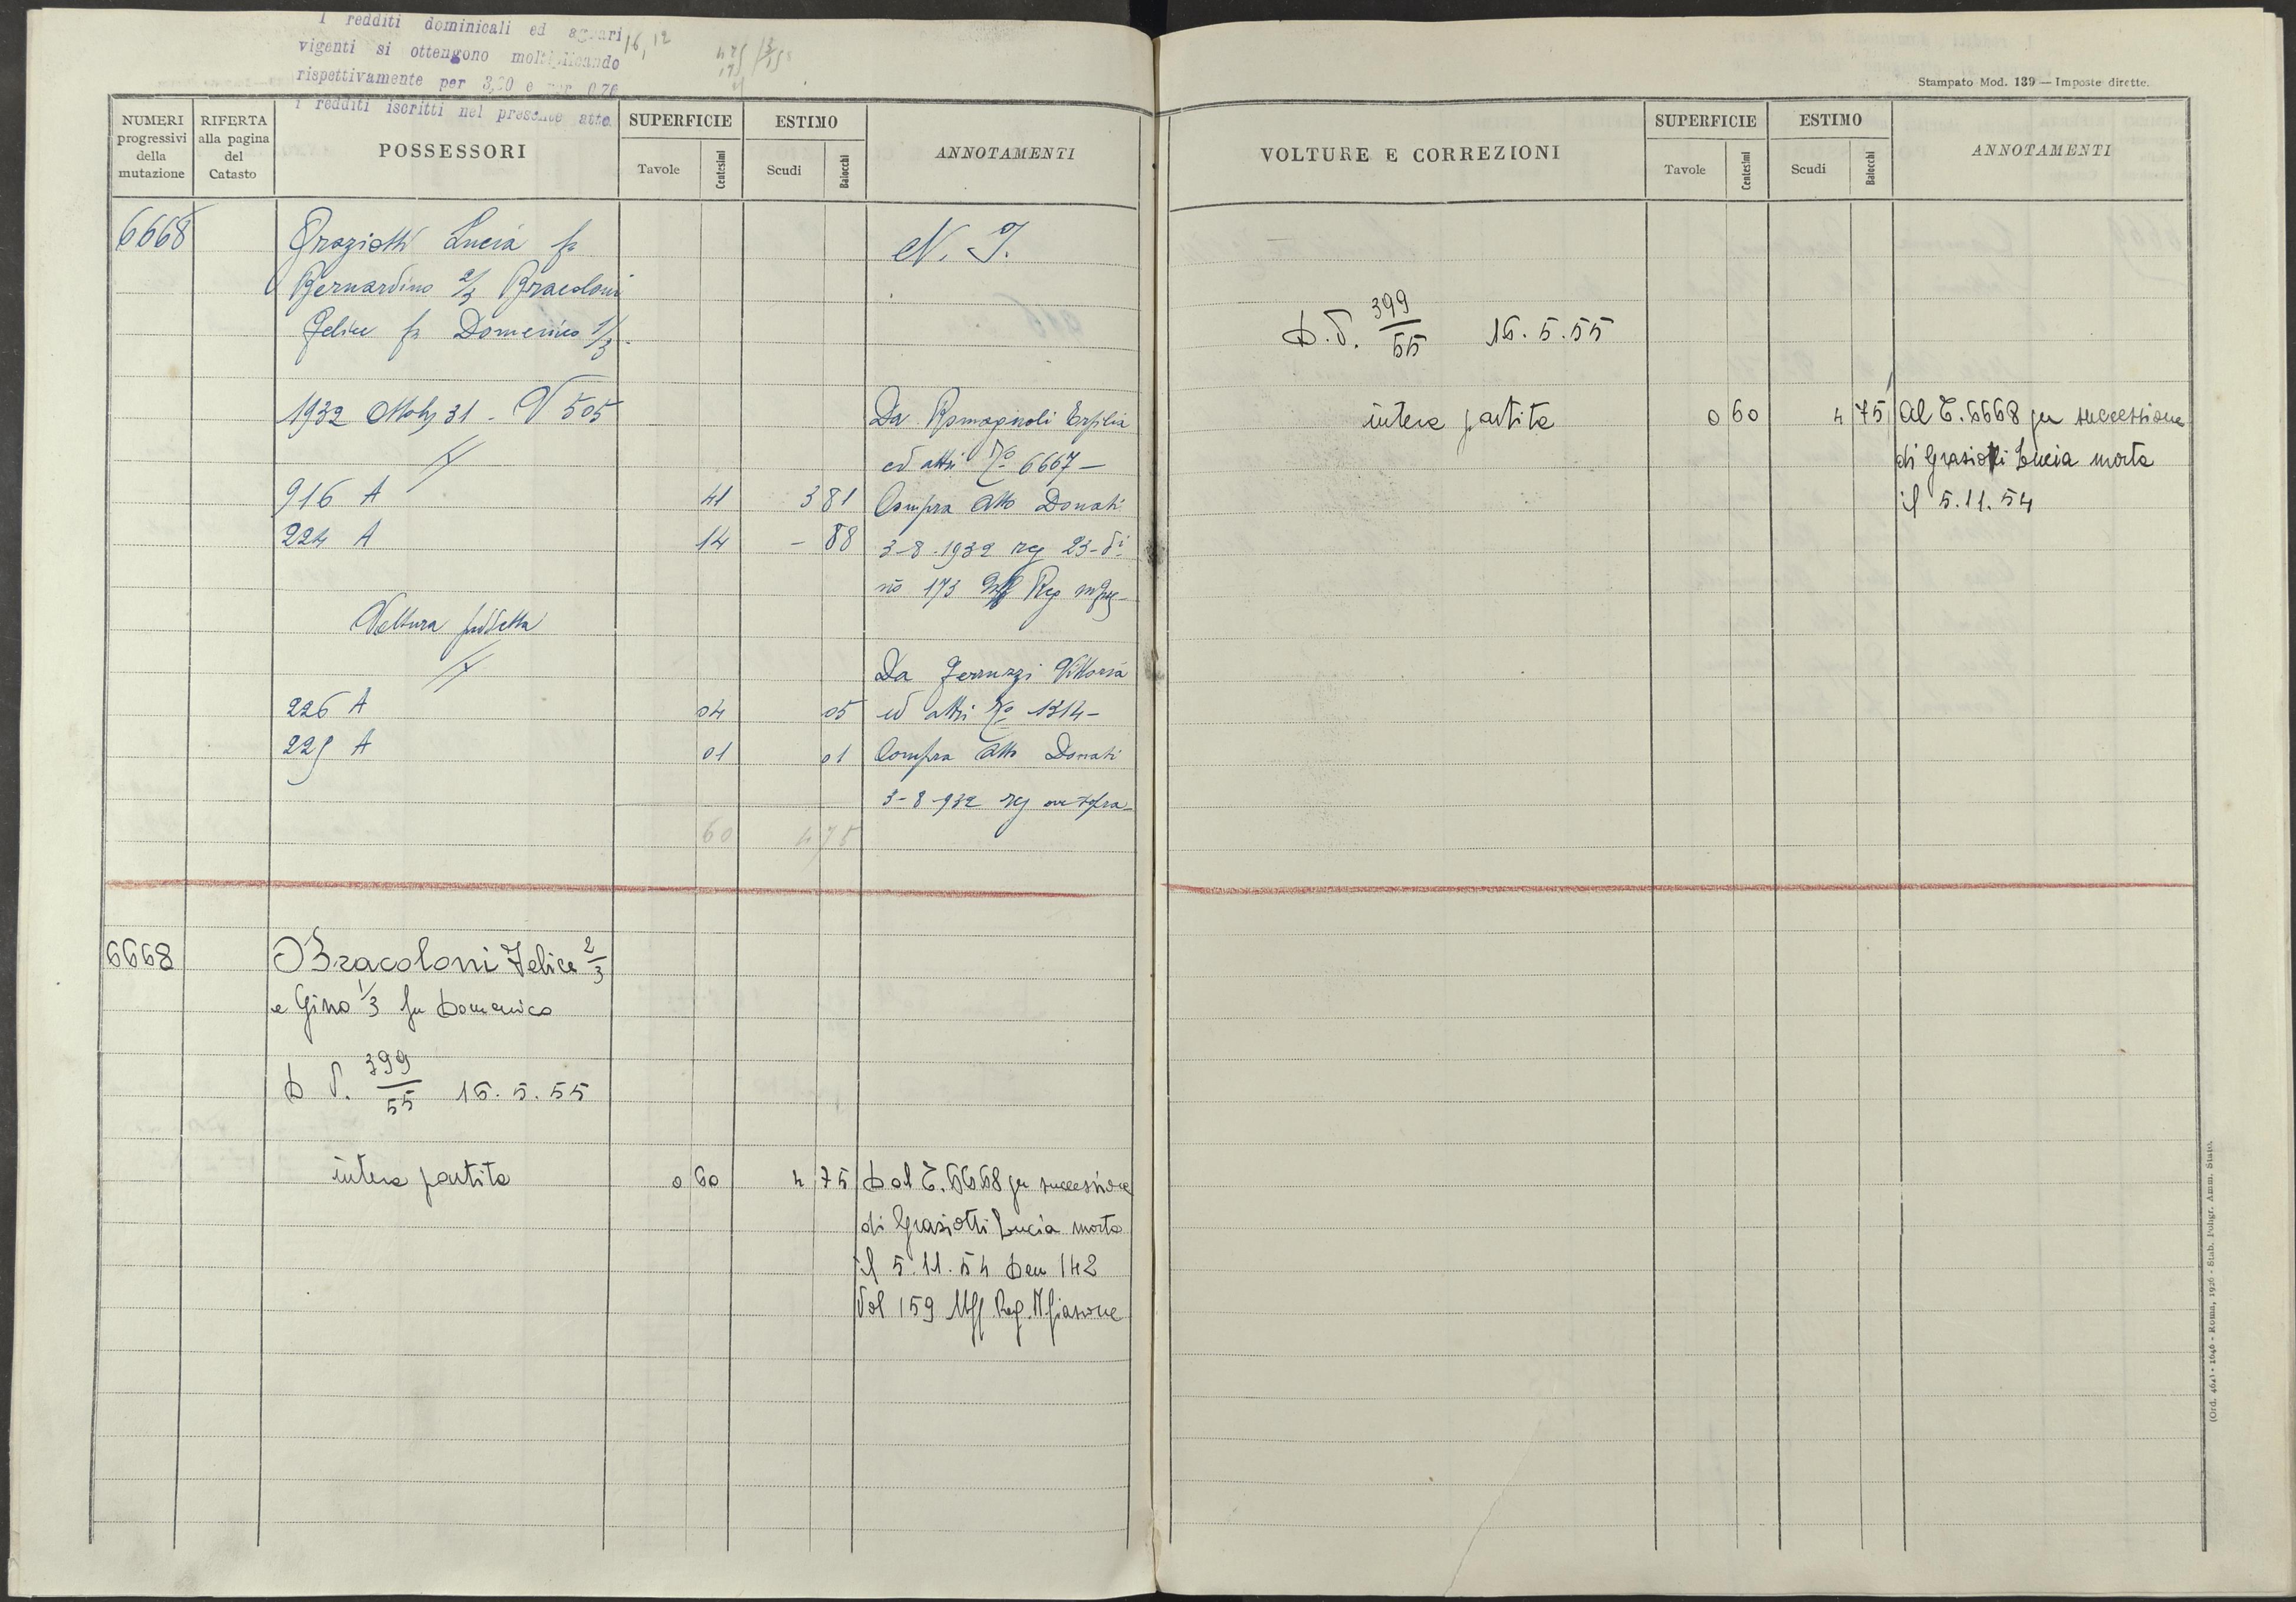 I redditi dominicali ed agrari
vigenti si ottengono moltiplicando
rispettivamente per 3,20 e per 0,70
i redditi iscritti nel presente atto.
16,12
NUMERI progressivi della mutazione
RIFERTA alla pagina del Catasto
POSSESSORI
SUPERFICIE
Tavole Centesimi
ESTIMO
Scudi Baiocchi
ANNOTAMENTI
6668 Graziotti Lucia fu N. I.
Bernardino 2/3 Bracoloni
Felice fu Domenico 1/3.
1932 31 - V 505 Da Romagnoli Ersilia
ed altri No 6667 -
916 A 41 3 81 Compra Atto Donati
224 A 14 - 88 3-8-1932 reg 23-di
no 173 Uff Reg
Voltura suddetta
Da Ferruzzi Vittoria
226 A 04 05 ed altri No 1314 -
225 A 01 01 Compra Atto Donati
3-8-932 reg ove sopra
60 4 75
6668 Bracoloni Felice 2/3
e Gino 1/3 fu Domenico
D V. 399/55 16.5.55
intera partita 0 60 4 75 Dal T. 6668 per successione
di Graziotti Lucia morta
il 5.11.54 Den 142
Vol 159 Uff. Reg. M.fiascone
Stampato Mod. 139 — Imposte dirette.
VOLTURE E CORREZIONI
SUPERFICIE
Tavole Centesimi
ESTIMO
Scudi Baiocchi
ANNOTAMENTI
D.V. 399/55 16.5.55
intera partita 0 60 4 75 Al T. 6668 per successione
di Graziotti Lucia morta
il 5.11.54
(Ord. 464) - 1646 - Roma, 1926 - Stab. Poligr. Amm. Stato.